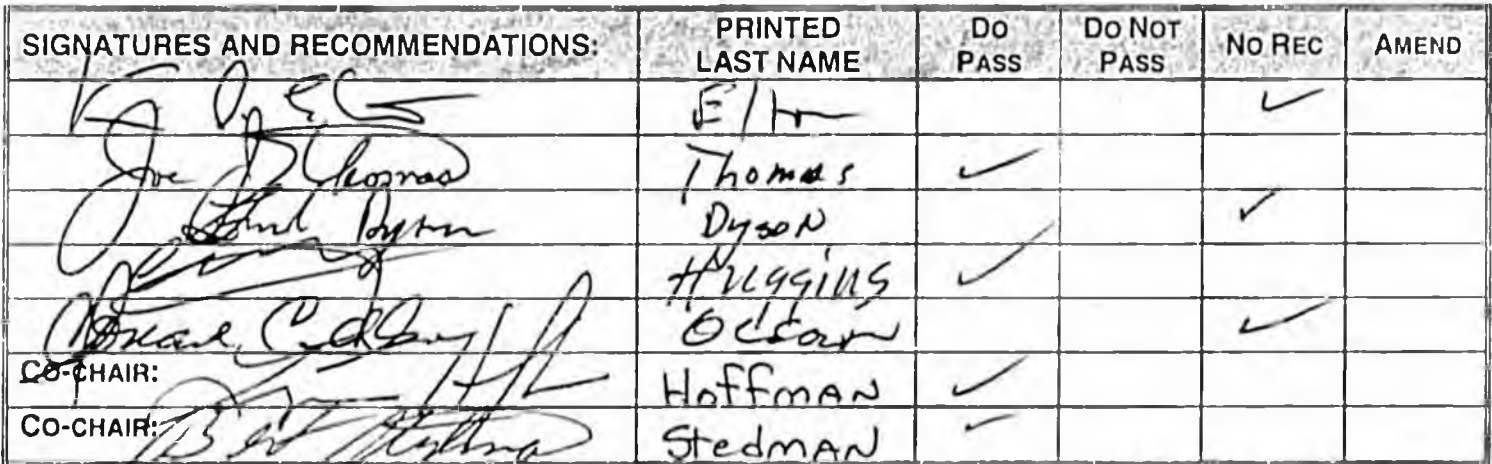 SIGNATURES AND RECOMMENDATIONS: PRINTED LAST NAME DO PASS DO NOT PASS NO REC AMEND
✓
Joe Thomas Thomas ✓
Dyson Dyson ✓
Huggins ✓
✓
CO-CHAIR: Hoffman ✓
CO-CHAIR: Bert Stedman Stedman ✓